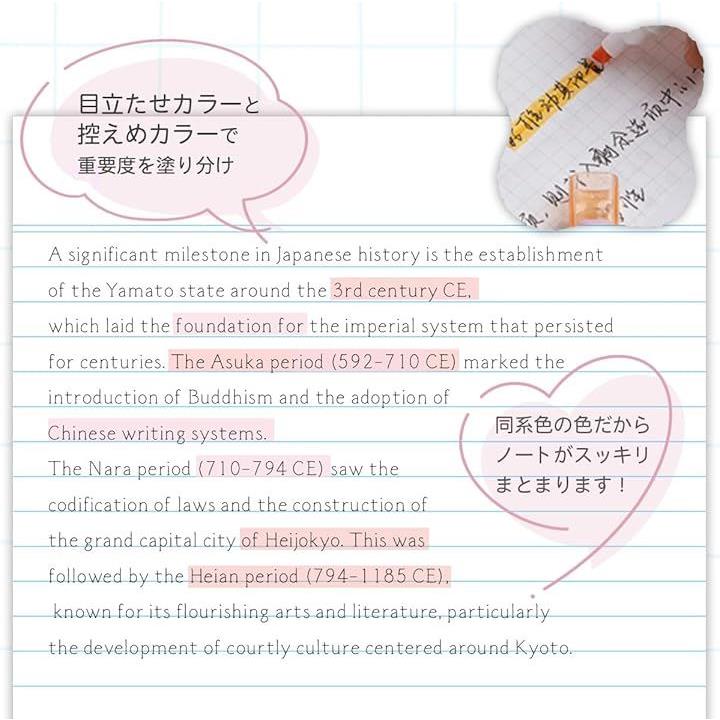 目立たせカラーと
控えめカラーで
重要度を塗り分け
A significant milestone in Japanese history is the establishment
of the Yamato state around the 3rd century CE,
which laid the foundation for the imperial system that persisted
for centuries. The Asuka period (592-710 CE) marked the
introduction of Buddhism and the adoption of
Chinese writing systems.
同系色の色だから
ノートがスッキリ
まとまります！
The Nara period (710-794 CE) saw the
codification of laws and the construction of
the grand capital city of Heijokyo. This was
followed by the Heian period (794-1185 CE),
known for its flourishing arts and literature, particularly
the development of courtly culture centered around Kyoto.